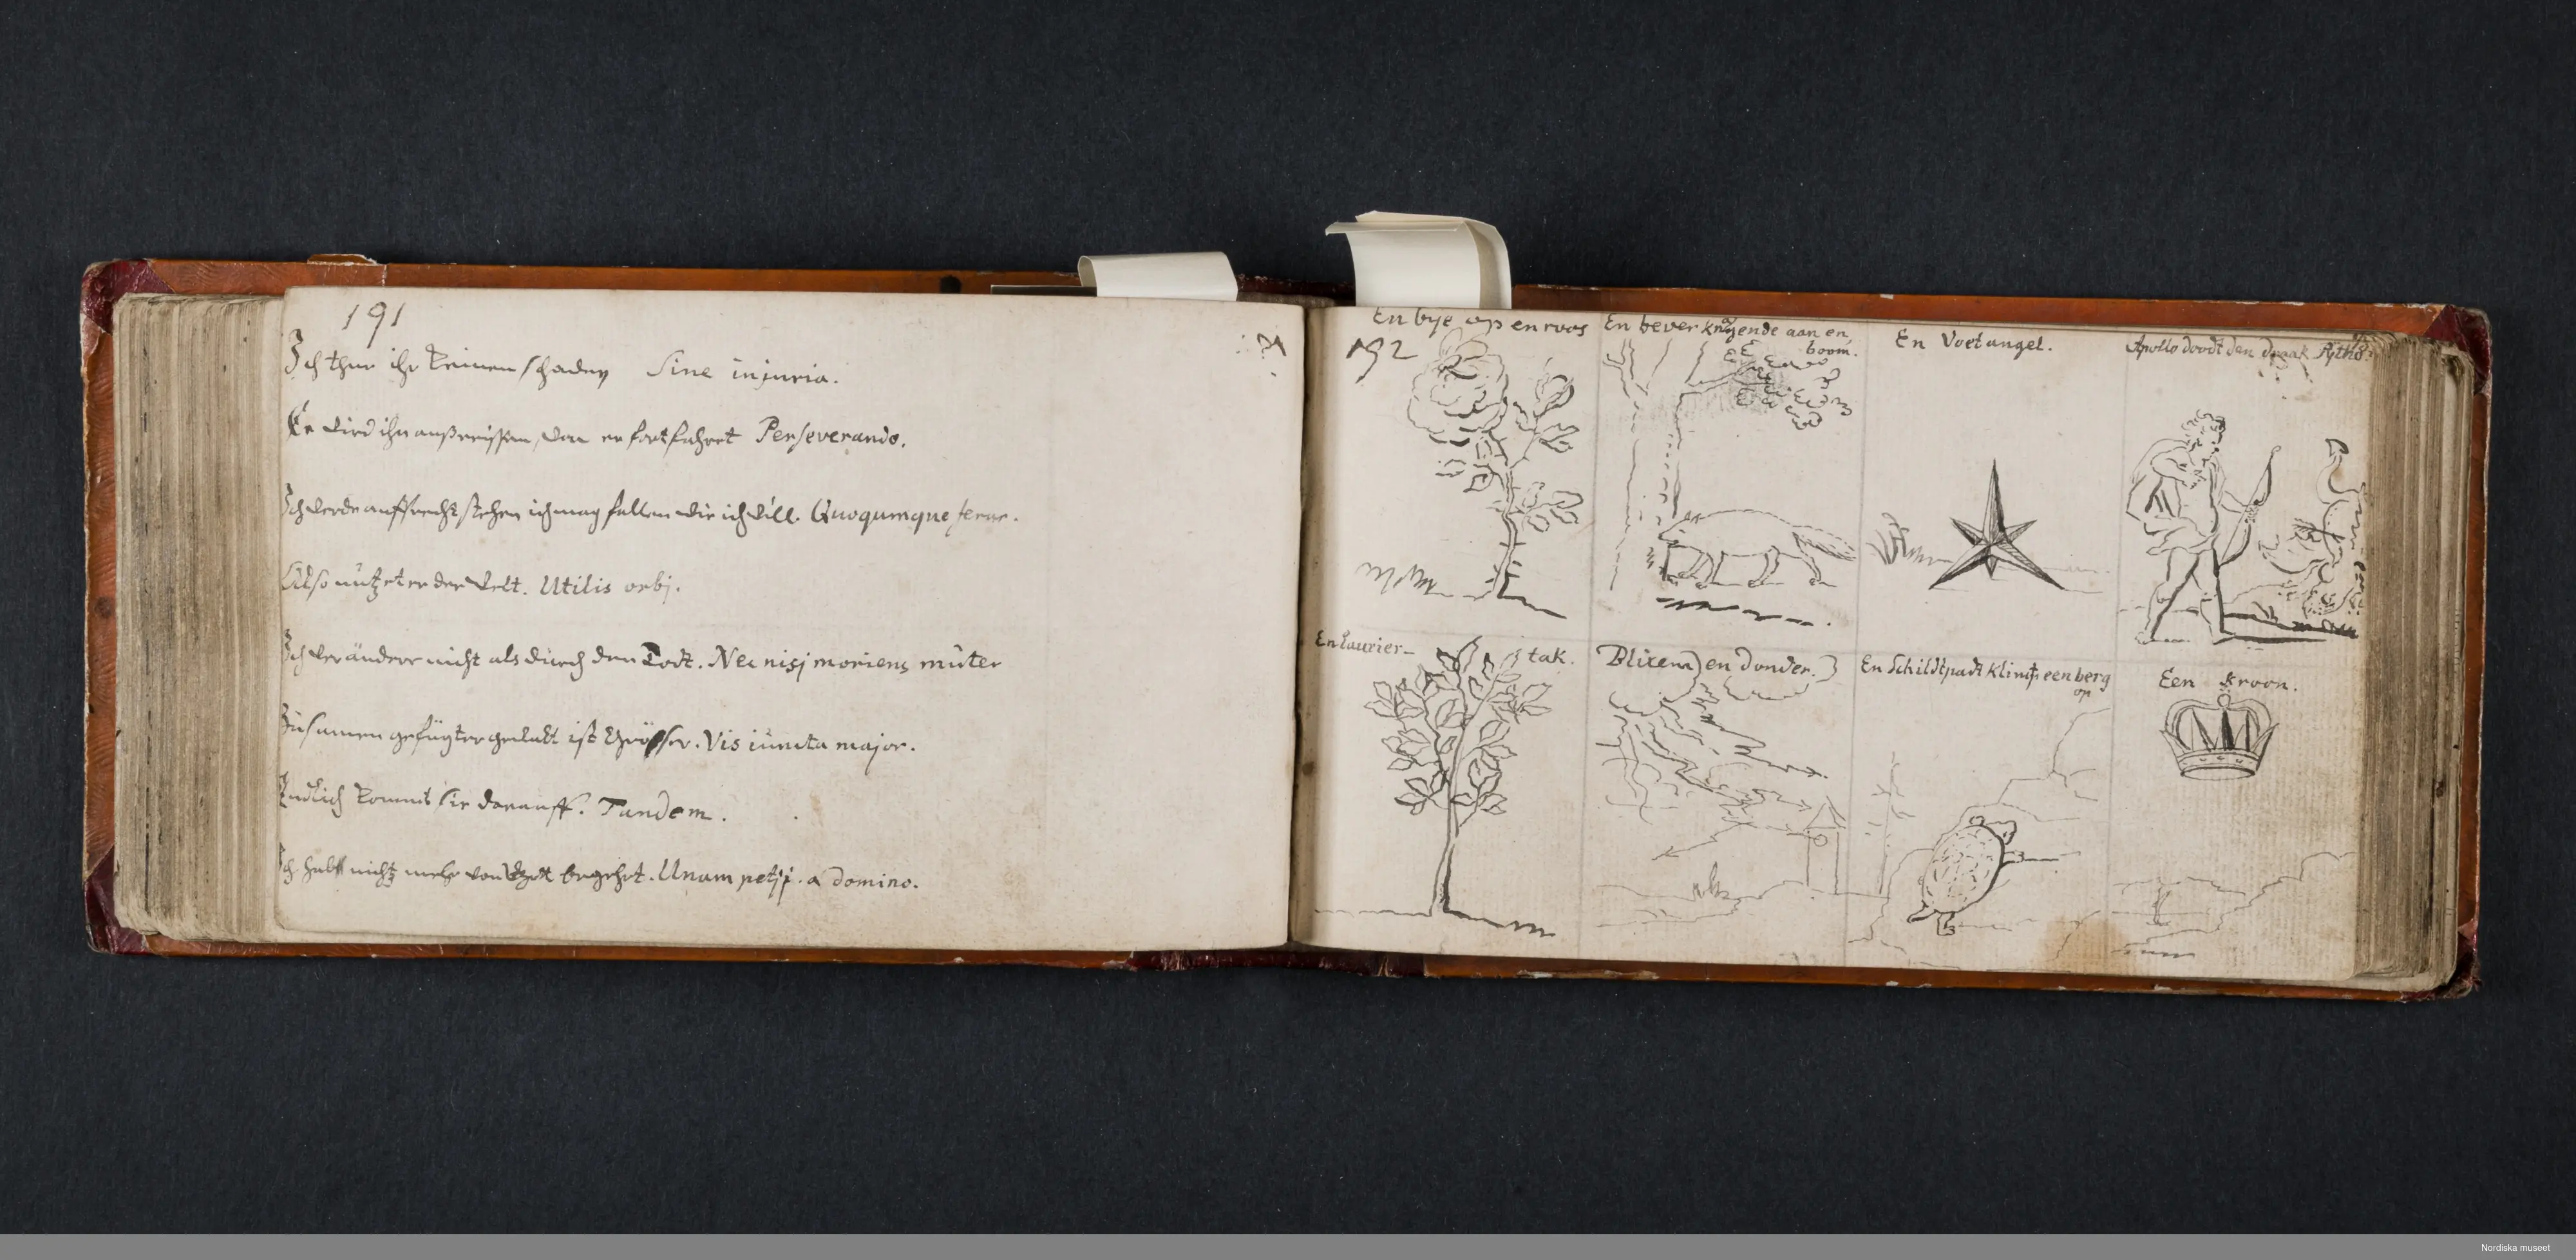 191
Ich thue ihr keinen schaden Sine injuria.
Er wird ihn außreissen, wan er fortfahret Perseverando.
Ich werde auffrecht stehen ich mag fallen wie ich will. Quoqumque ferar.
Also nützet er der welt. Utilis orbj.
Ich verändere nicht als durch den Todt. Nec nisj moriens muter
Zusamen gefügter gewalt ist grösser. Vis iuncta major.
Endlich kommt sie darauff. Tandem.
Ich habe nichtz mehr von Gott begehrt. Unam petij. a domino.
192
En bye op en roos
En bever knagende aan en boom.
En Voetangel.
Apollo doodt den draak
En Laurier-tak.
Blixem en donder.
En Schildtpadt klimt een berg op
Een kroon.
Nordiska museet